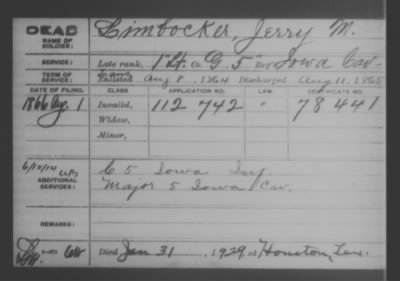 DEAD
NAME OF SOLDIER: Limbocker, Jerry M.
SERVICE: Late rank, 1" Lt. Co. G. 5" Reg Iowa Cav.
TERM OF SERVICE: Enlisted Aug 8, 1864 Discharged Aug 11, 1865
DATE OF FILING. CLASS APPLICATION NO. LAW. CERTIFICATE NO.
1866 Aug. 1 Invalid, 112 742 " 78 441
Widow,
Minor,
6/10/14
ADDITIONAL SERVICES: C 5 Iowa Inf.
Major 5 Iowa Cav.
REMARKS:
Died Jan 31, 1929, at Houston, Tex.